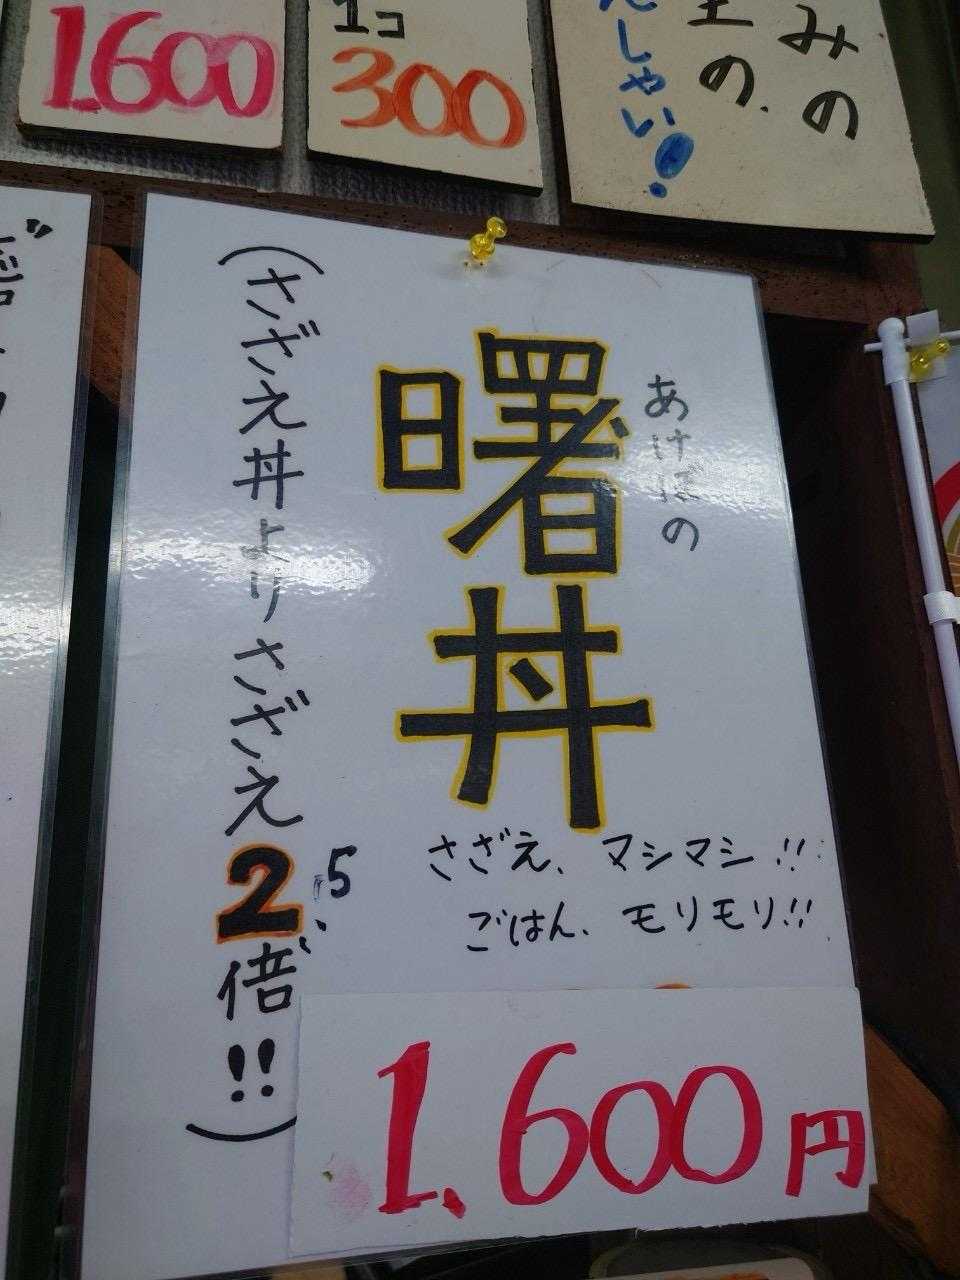 1,600
1コ
300
みの
の、
しゃい!
あけぼの
曙丼
(さざえ丼よりさざえ2.5倍!!)
さざえ、マシマシ!!
ごはん、モリモリ!!
1,600円